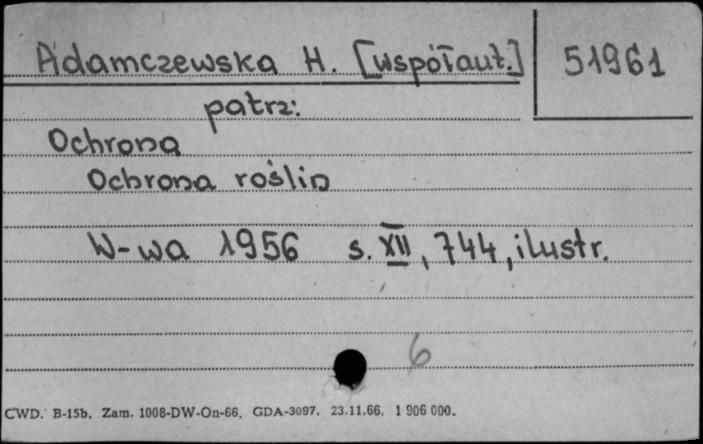 Adamczewska H. [współaut.] 51961
patrz:
Ochrona
Ochrona roślin
W-wa 1956 s. XII, 744, ilustr.
6
CWD. B-15b. Zam. 1008-DW-On-66. GDA-3097. 23.11.66. 1 906 000.